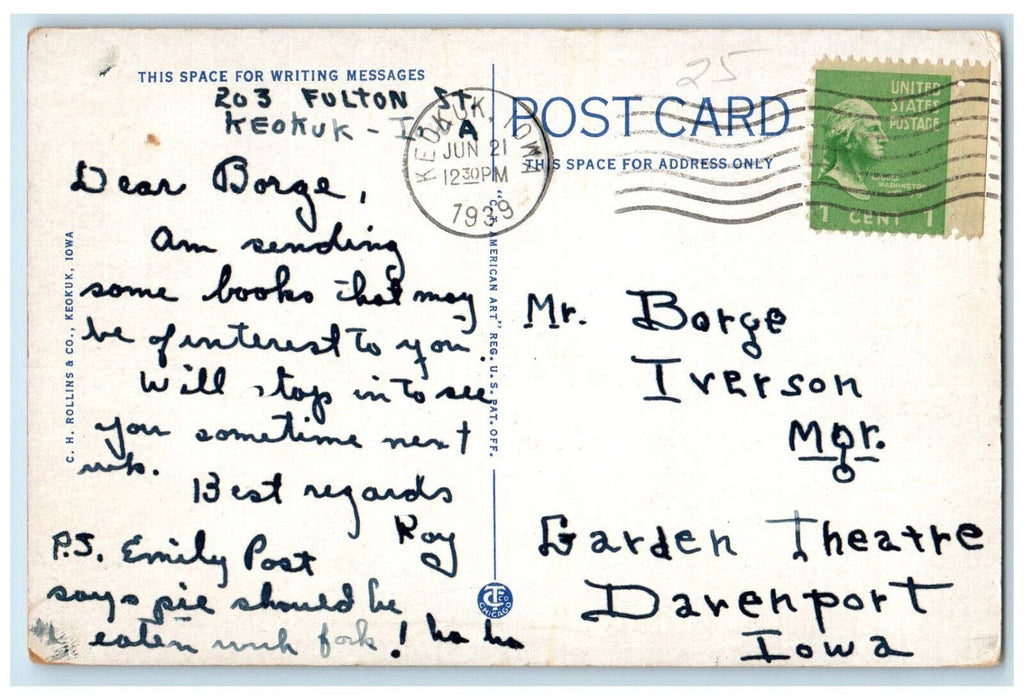 THIS SPACE FOR WRITING MESSAGES
203 FULTON ST.
KEOKUK - I A
Dear Borge,
Am sending
some books that may
be of interest to you.
Will stop in to see
you sometime next
wk.
Best regards
Roy
P.S. Emily Post
says pie should be
eaten with fork! ha ha
C. H. ROLLINS & CO., KEOKUK, IOWA
AMERICAN ART" REG. U. S. PAT. OFF.
CHICAGO
KEOKUK, IOWA
JUN 21
12 30 PM
1939
25
POST CARD
THIS SPACE FOR ADDRESS ONLY
UNITED
STATES
POSTAGE
WASHINGTON
1 CENT 1
Mr. Borge
Iverson
Mgr.
Garden Theatre
Davenport
Iowa